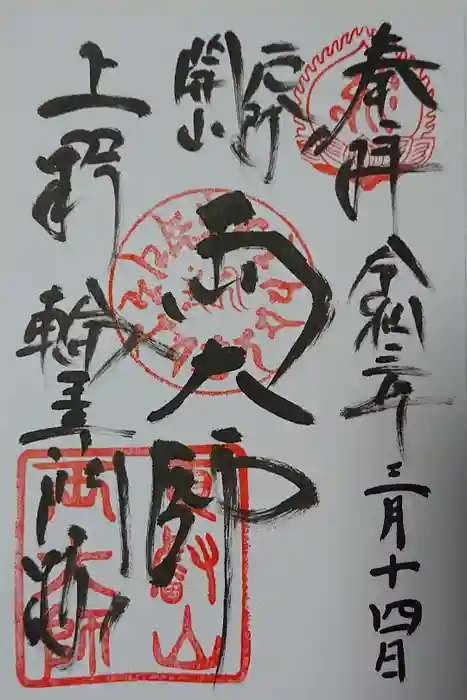 奉拝 令和三年三月十四日
開山
両大師
上野 輪王門跡
東叡山
両大師